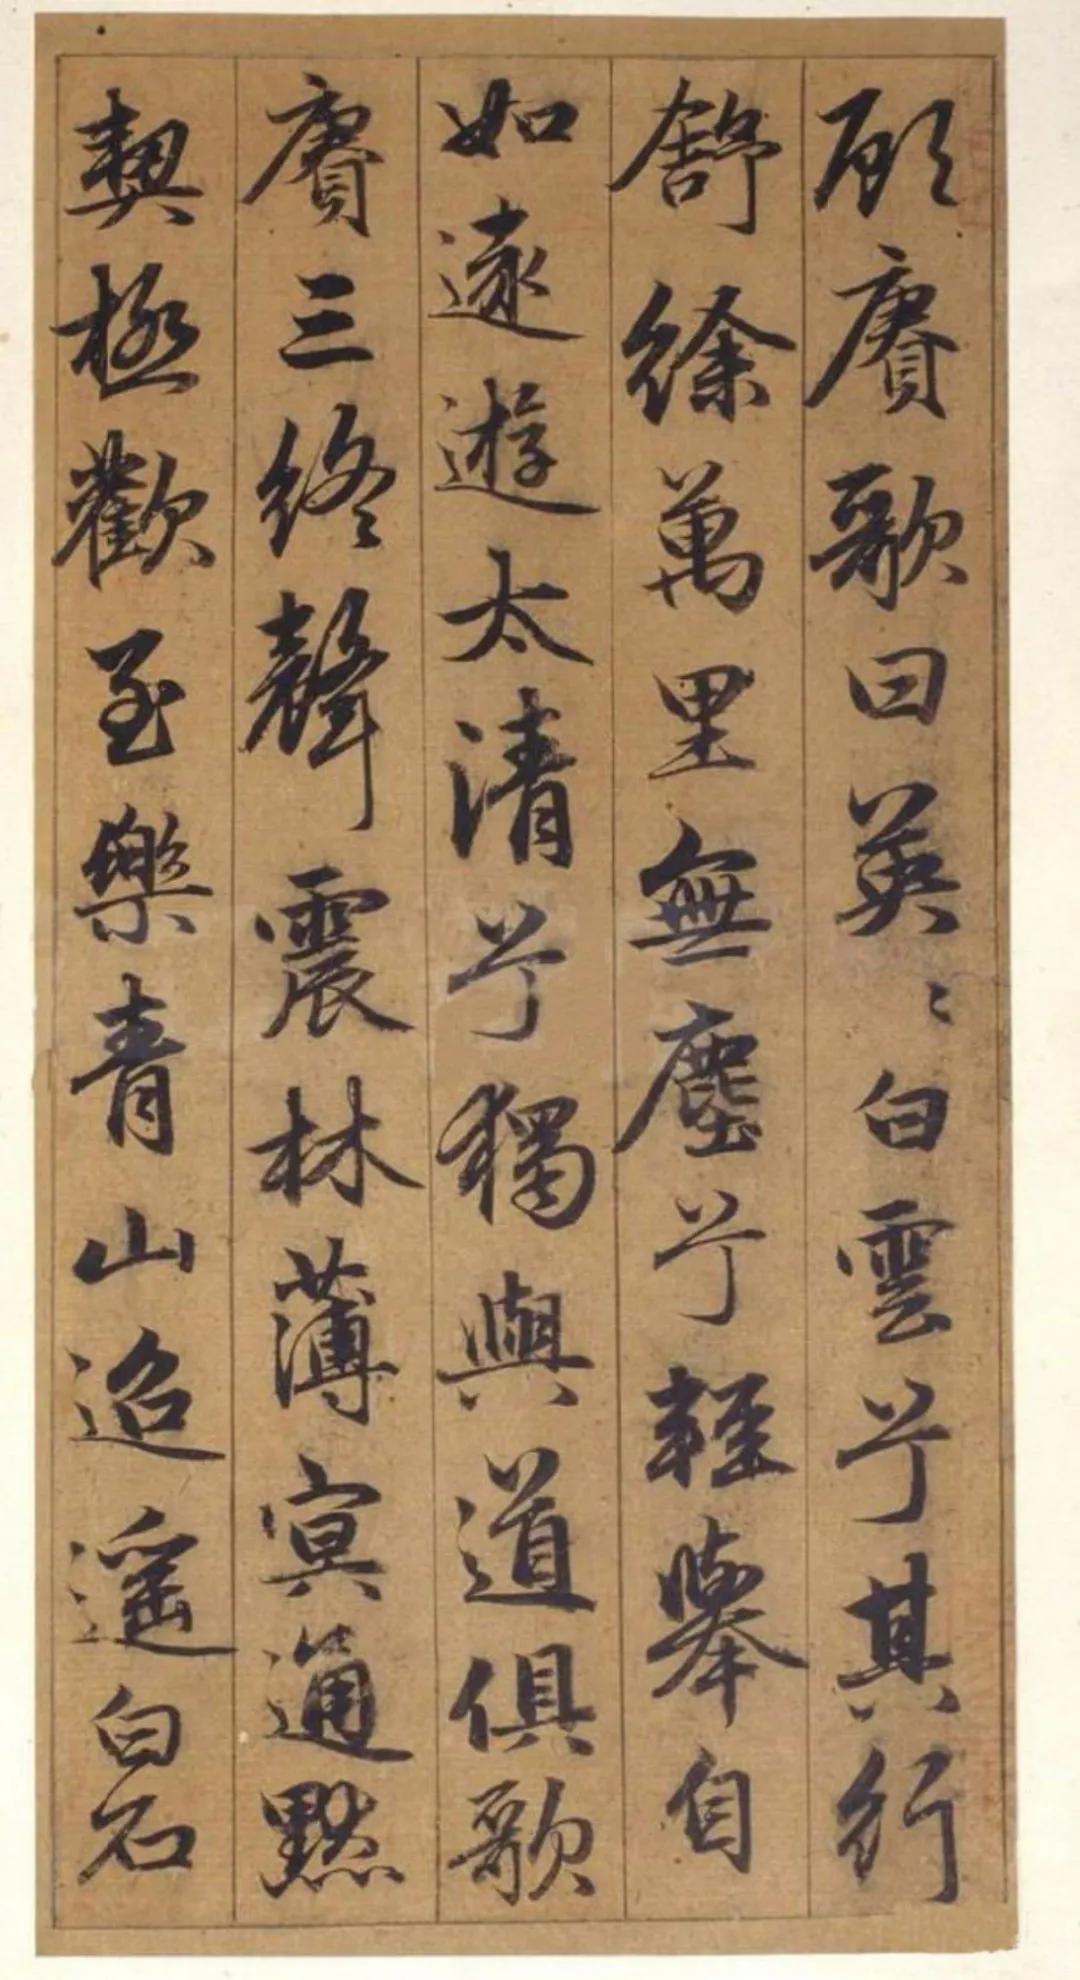 頋賡歌曰英〻白雲兮其行
舒徐萬里無塵兮輕舉自
如遠遊太清兮獨與道俱歌
賡三終聲震林薄寅通黙
契極歡至樂青山迢遥白石